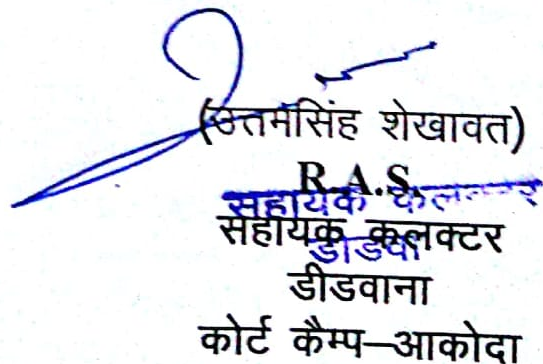 (उत्तमसिंह शेखावत)
R.A.S.
सहायक कलक्टर
सहायक कलक्टर
डीडवाना
कोर्ट कैम्प–आकोदा